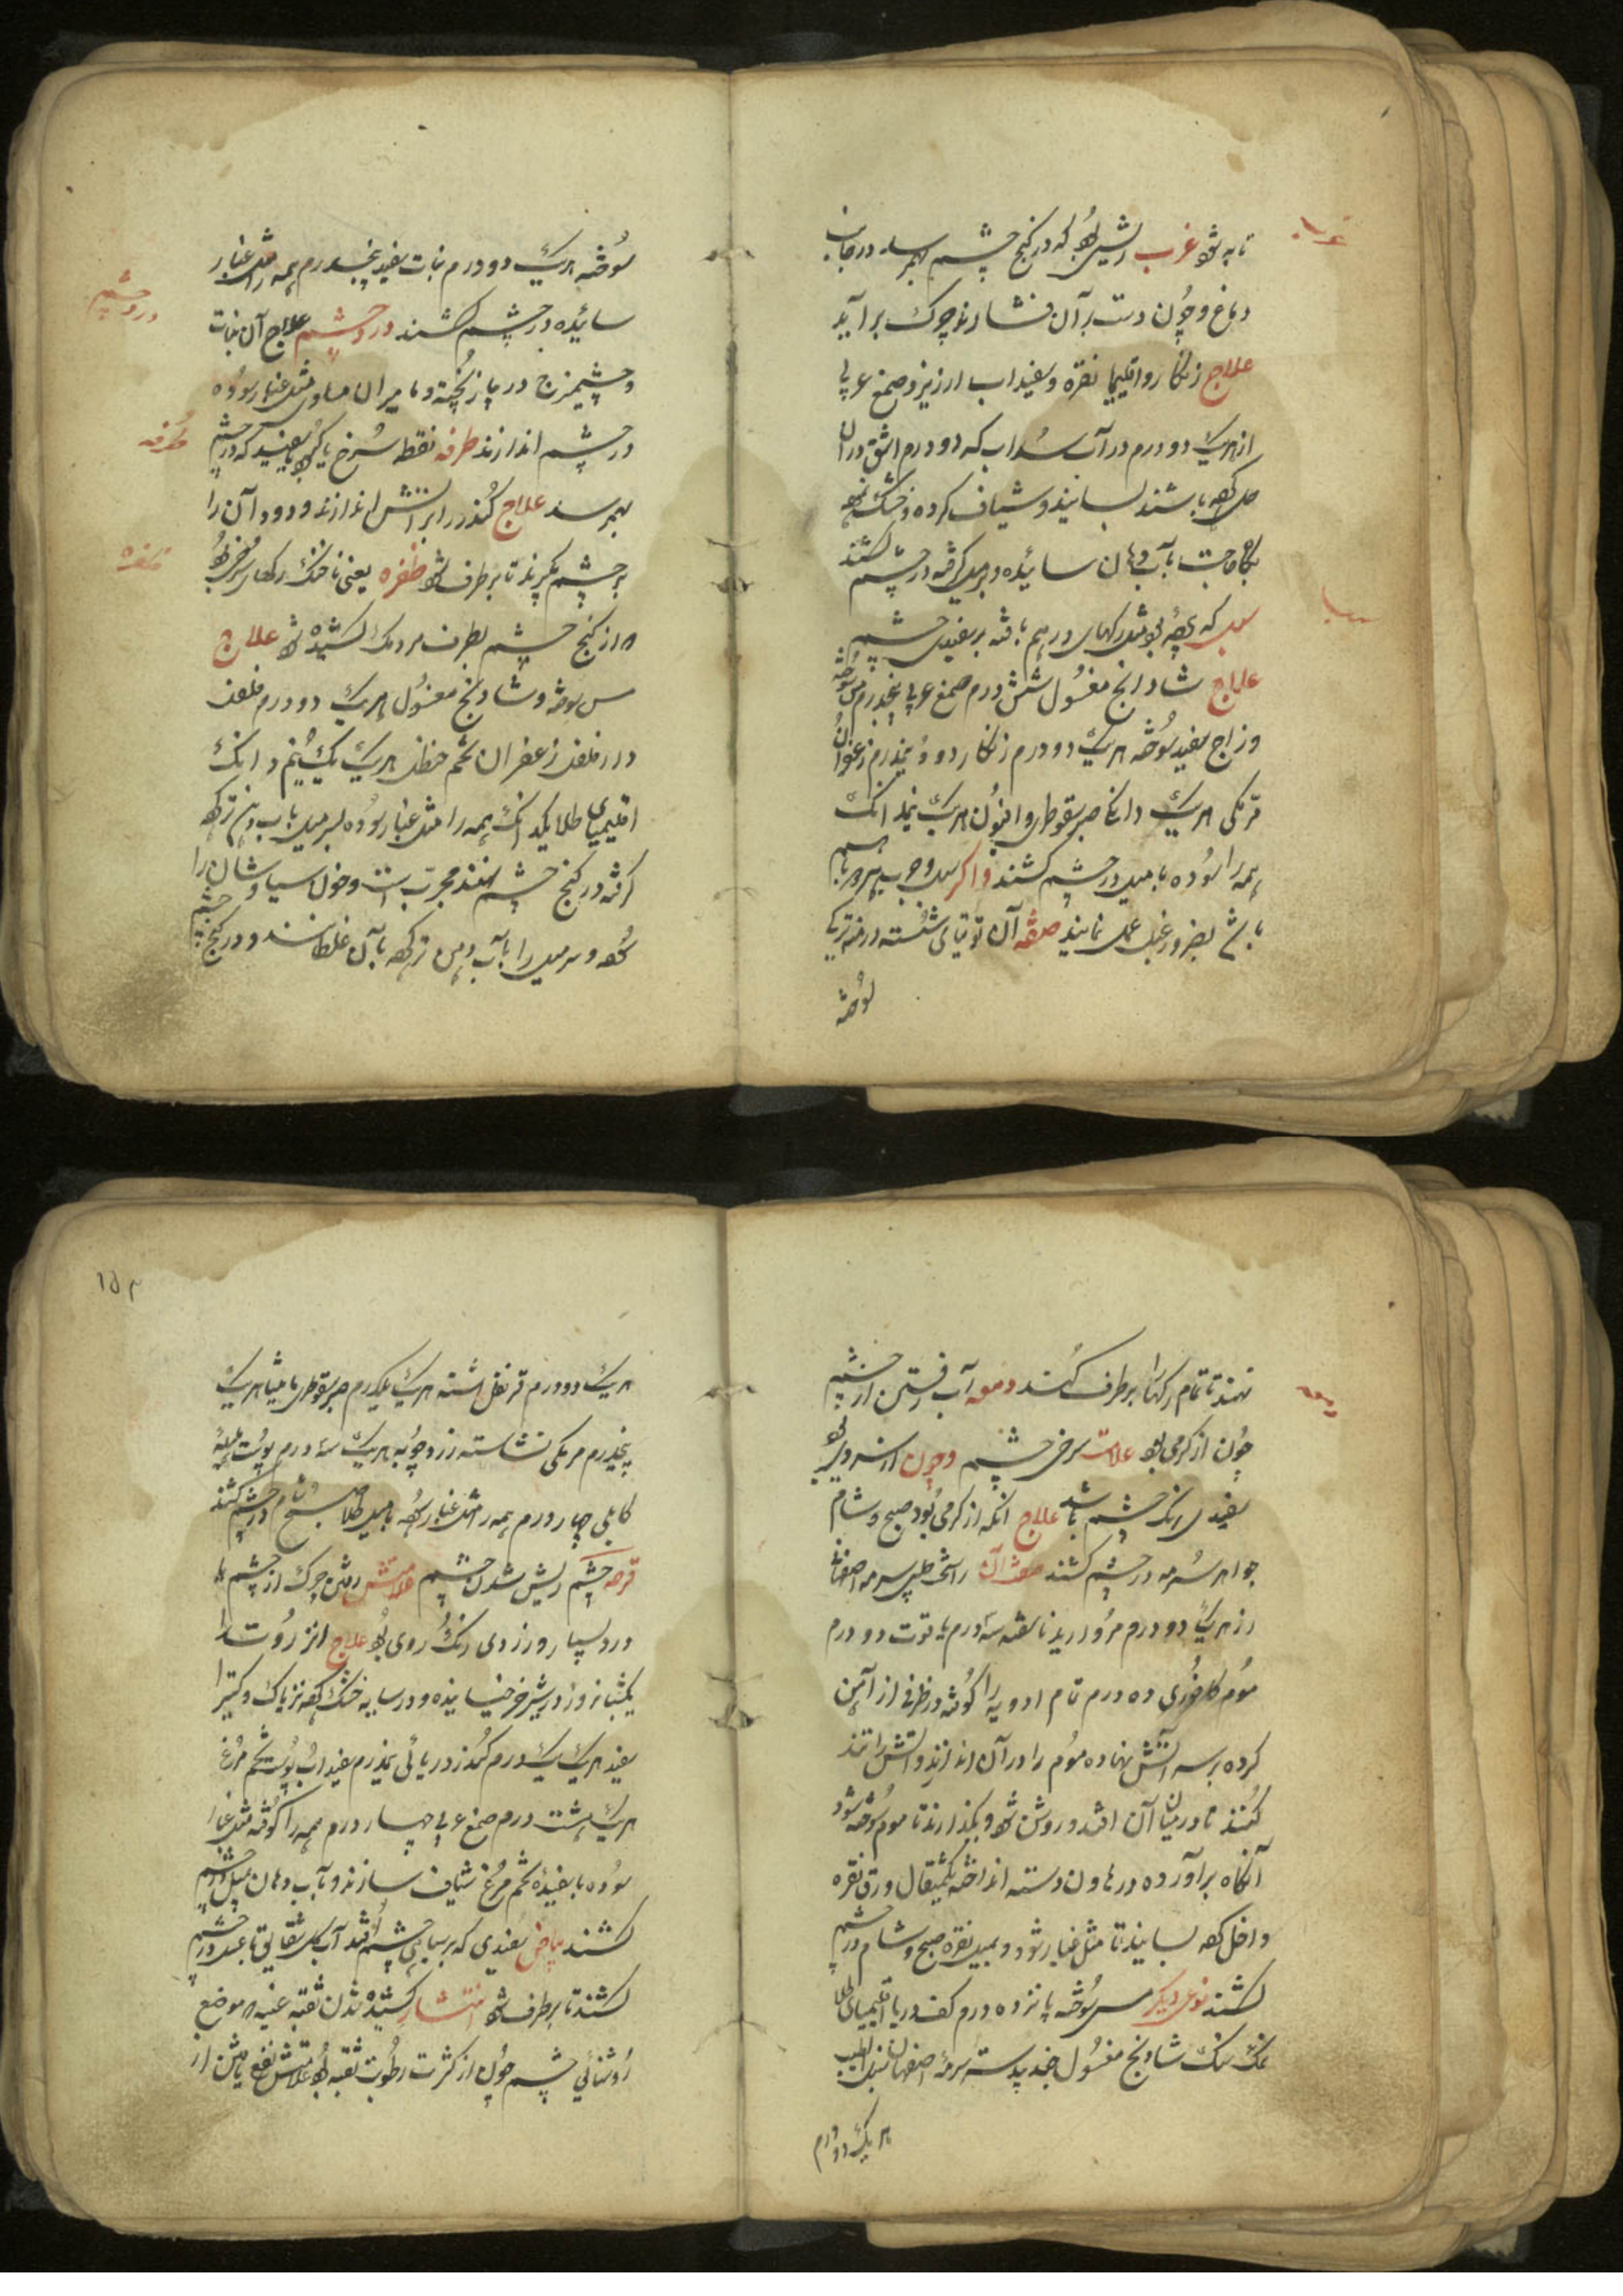 تا به شود غرب ریشی بود که در کنج چشم بهم رسد در جانب
دماغ و چون دست بر آن فشارند چرک بر آید
علاج زنگار و اقلیمیا نقره و سفیداب ارزیز و صمغ عربی
از هریک دو درم در آب سداب که دو درم اشق در آن
حل کرده باشند بسایند و شیاف کرده و خشک نموده
بگاه حاجت بآب دهان سائیده و بر میل گرفته در چشم کشند
سبل که پرده بود مثل رگهای درهم بافته بر سفیدی چشم
علاج شادانج مغسول شش درم صمغ عربی پنجدرم مس سوخته
و زاج سفید سوخته هریک دو درم زنگار دو و نیمدرم زعفران
مرمکی هریک دانگی صبر سقوطری و افیون هریک نیمدانگ
همه را سوده با میل در چشم کشند و اگر سبل و جرب هر دو باهم
باشد بضرور عمل نمایند صفة آن توتیای شسته
سوخته
غرب
سبل
سوخته هریک دو درم نبات سفید پنجدرم همه را مثل غبار
سائیده در چشم کشند درد چشم علاج آن نبات
و چشمیزج در پیاز پخته و مامیران مساوی مثل غبار سوده
در چشم اندازند طرفه نقطه سرخ یا کبود یا سفید که در چشم
بهم رسد علاج کندر را بر آتش اندازند و دود آن را
بر چشم گیرند تا برطرف شود ظفره یعنی ناخنک رگهای سرخ بود
که از کنج چشم بطرف مردمک کشیده شود علاج
مس سوخته و شادنج مغسول هریک دو درم فلفل
دار فلفل زعفران تخم حنظل هریک یک و نیم دانگ
اقلیمیای طلا یکدانگ همه را مثل غبار سوده بسر میل بآب دهن تر کرده
گرفته در کنج چشم نهند مجرب است و خون سیاوشان را
کرده و سر میل را بآب دهن تر کرده بآن غلطانند و در کنج چشم
درد چشم
طرفه
ظفره
نهند تا تمام رگها را برطرف کند دمعه آب رفتن از چشم
چون از گرمی بود علامت سرخی چشم و چون از سردی بود
سفیدی رنگ چشم باشد علاج آنکه از گرمی بود صبح و شام
جواهر سرمه در چشم کشند صفت آن سرمه اصفهانی
از هریک دو درم مروارید ناسفته سه درم یاقوت دو درم
موم کافوری ده درم تمام ادویه را کوفته در ظرفی از آهن
کرده بر سر آتش نهاده موم را در آن اندازند و آتش را تند
کنند تا در میان آن افتد و روشن شود و بگذارند تا موم سوخته شود
آنگاه برآورده در هاون دسته انداخته یکمثقال ورق نقره
داخل کرده بسایند تا مثل غبار شود و بمیل نقره صبح و شام در چشم
کشند نوعی دیگر مس سوخته پانزده درم کف دریا اقلیمیای طلا
نمک سنگ شادنج مغسول جند بیدستر سرمه اصفهان سنبل الطیب
هریک دو درم
دمعه
۱۵۳
هریک دو درم قرنفل اشنه هریک یکدرم صبر سقوطری مامیثا هریک
پنجدرم مرمکی نشاسته زردچوبه هریک سه درم پوست هلیله
کابلی چهار درم همه را مثل غبار کرده با میل طلا صبح و شام در چشم کشند
قرحه چشم ریش شدن چشم علامتش رفتن چرک از چشم با
درد بسیار و زردی رنگ روی بود علاج انزروت را
یکشبانروز در شیر خر خیسانیده و در سایه خشک کرده تریاک و کتیرا
سفید هریک یک درم کندر دریائی نیمدرم سفیداب پوست تخم مرغ
هریک هشت درم صمغ عربی چهار درم همه را کوفته مثل غبار
سوده با سفیده تخم مرغ شیاف سازند و بآب دهان بمیل در چشم
کشند بیاض سفیدی که بر سیاهی چشم افتد آب گل شقایق با عسل در چشم
کشند تا برطرف شود انتشار کشیده شدن ثقبه عنبیه که موضع
روشنائی چشم چون از کثرت رطوبت ثقبه بود علامتش نفع یافتن از